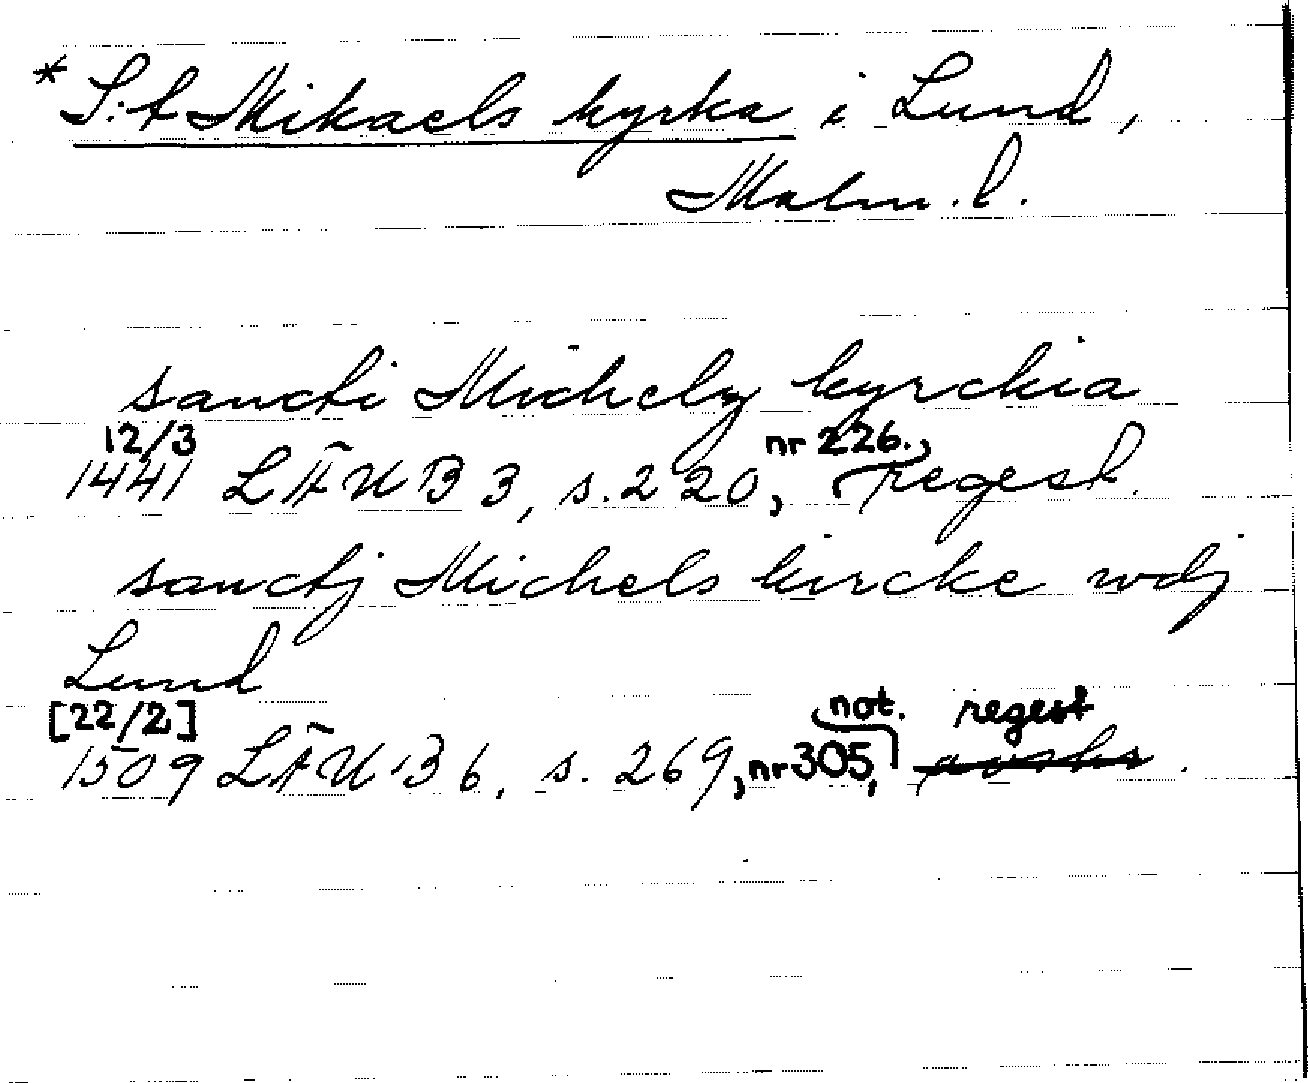 * S:t Mikaels kyrka i Lund,
Malm. l.
sancti Michely kyrckia
12/3 nr 226.,
1441 LÄUB 3, s. 220, regest.
sanctj Michels kircke wdj
Lund
[22/2] not. regest
1509 LÄUB 6, s. 269, nr 305, avskr.